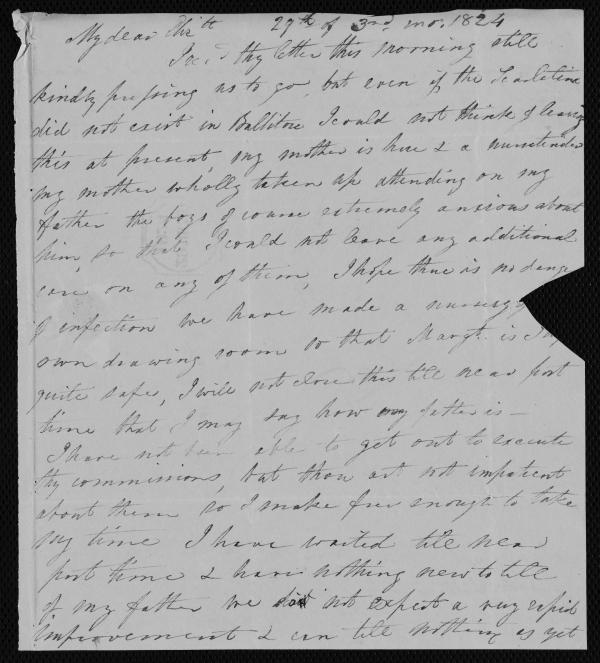 My dear Eliz.th 27th of 3rd mo. 1824
I rec.d thy letter this morning still
kindly pressing us to go, but even if the Scarletina
did not exist in Ballitore I could not think of leaving
this at present, my mother is here & a nursetender
my mother wholly taken up attending on my
father the boys of course extremely anxious about
him, so that I could not leave any additional
care on any of them, I hope there is no dang
of infection we have made a nursery
own drawing room so that Margt. is I
quite safe, I will not close this till near post
time that I may say how my father is –
I have not been able to get out to execute
thy commissions, but thou art not impatient
about them so I make free enough to take
my time I have waited till near
post time & have nothing new to tell
of my father we did not expect a very rapid
improvement & can tell nothing as yet